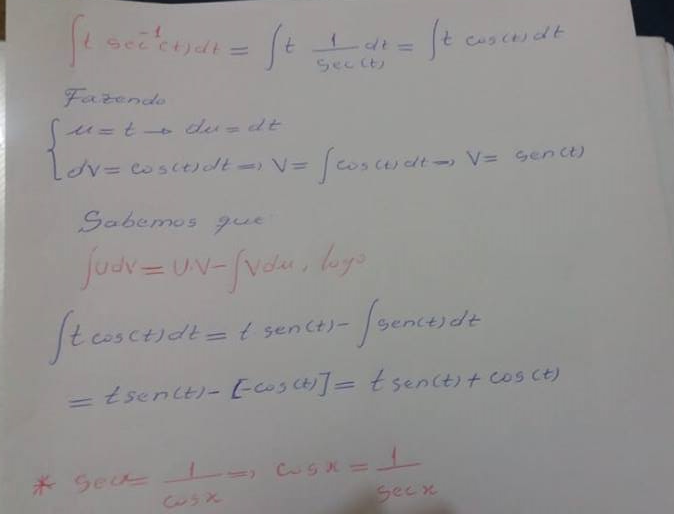 ∫t sec⁻¹(t)dt = ∫t 1/sec(t) dt = ∫t cos(t)dt
Fazendo
{u = t → du = dt
dv = cos(t)dt ⇒ V = ∫cos(t)dt ⇒ V = sen(t)
Sabemos que
∫udv = U.V - ∫Vdu, logo
∫t cos(t)dt = t sen(t) - ∫sen(t)dt
= tsen(t) - [-cos(t)] = tsen(t) + cos(t)
* secx = 1/cosx ⇒, cosx = 1/secx